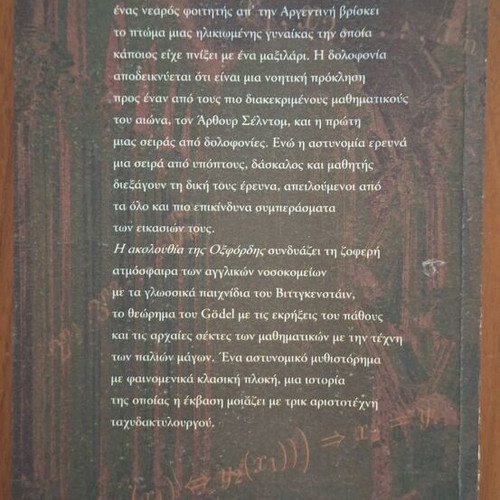 ένας νεαρός φοιτητής απ' την Αργεντινή βρίσκει
το πτώμα μιας ηλικιωμένης γυναίκας την οποία
κάποιος είχε πνίξει με ένα μαξιλάρι. Η δολοφονία
αποδεικνύεται ότι είναι μια νοητική πρόκληση
προς έναν από τους πιο διακεκριμένους μαθηματικούς
του αιώνα, τον Άρθουρ Σέλντομ, και η πρώτη
μιας σειράς από δολοφονίες. Ενώ η αστυνομία ερευνά
μια σειρά από υπόπτους, δάσκαλος και μαθητής
διεξάγουν τη δική τους έρευνα, απειλούμενοι από
τα όλο και πιο επικίνδυνα συμπεράσματα
των εικασιών τους.
Η ακολουθία της Οξφόρδης συνδυάζει τη ζοφερή
ατμόσφαιρα των αγγλικών νοσοκομείων
με τα γλωσσικά παιχνίδια του Βιττγκενστάιν,
το θεώρημα του Gödel με τις εκρήξεις του πάθους
και τις αρχαίες σέκτες των μαθηματικών με την τέχνη
των παλιών μάγων. Ένα αστυνομικό μυθιστόρημα
με φαινομενικά κλασική πλοκή, μια ιστορία
της οποίας η έκβαση μοιάζει με τρικ αριστοτέχνη
ταχυδακτυλουργού.
(x₁) ⇔ y₂(x₁))) ⇒ x₂ = y